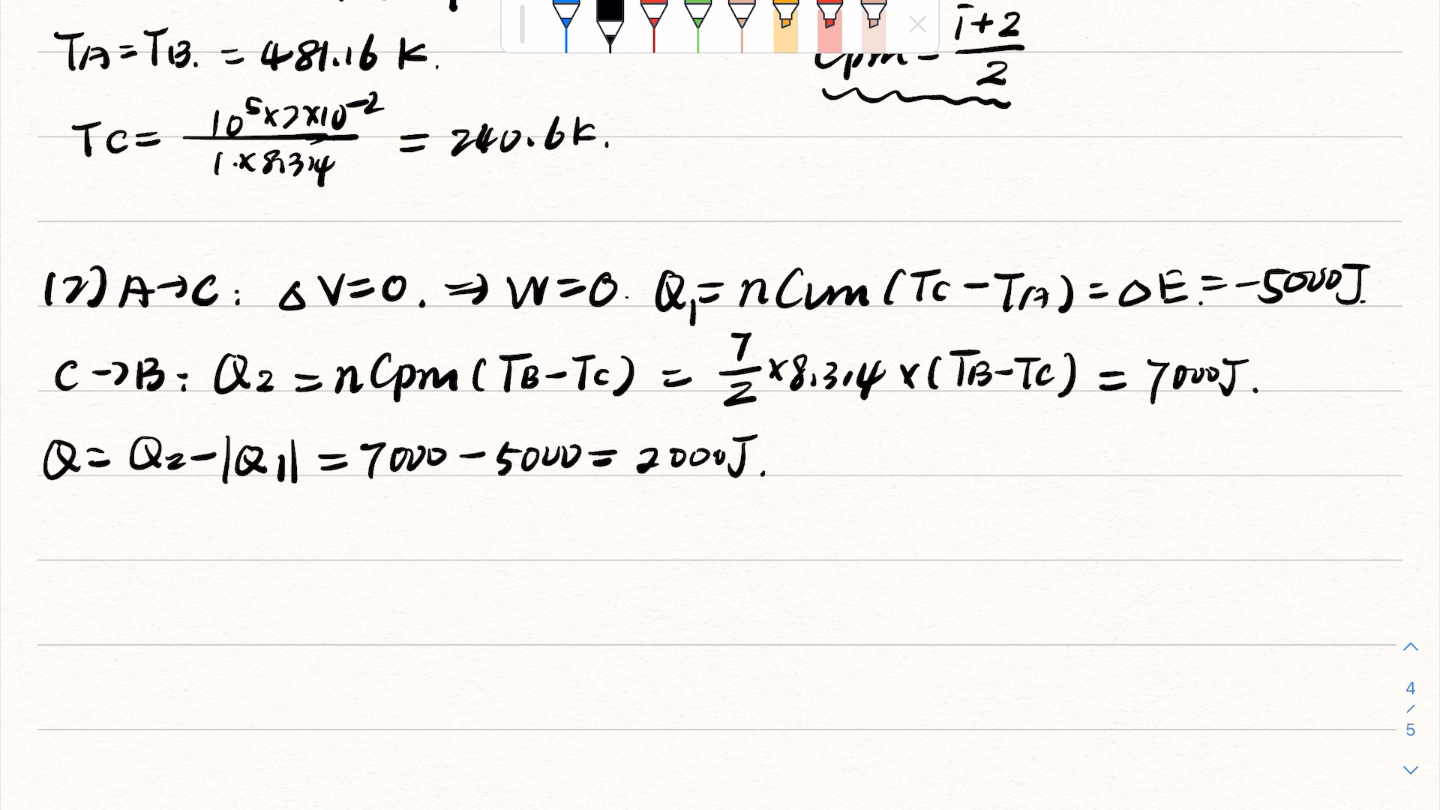 TA=TB. = 481.16 K.
Cpm = i+2/2
TC = 10^5×2×10^-2 / 1×8.314 = 240.6K.
(2) A→C: ΔV=0. ⇒ W=0. Q1 = nCvm(TC-TA) = ΔE = -5000J.
C→B: Q2 = nCpm(TB-TC) = 7/2 ×8.314×(TB-TC) = 7000J.
Q = Q2-|Q1| = 7000-5000 = 2000J.
4
/
5